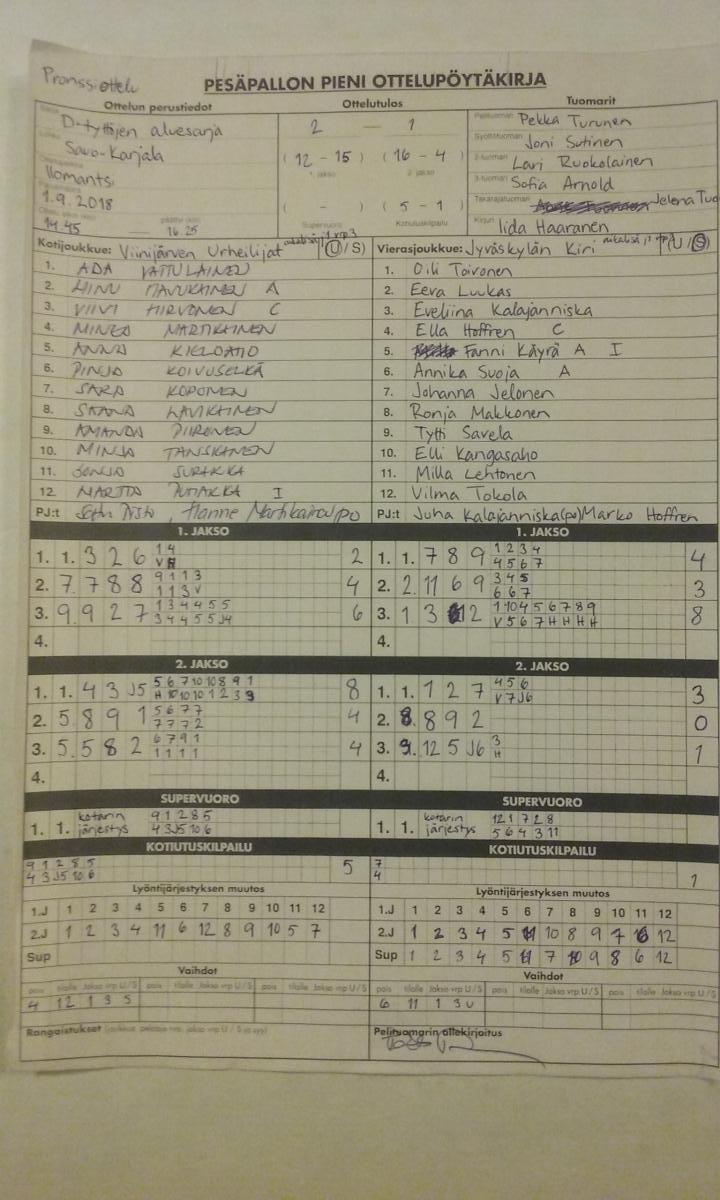 Pronssiottelu
PESÄPALLON PIENI OTTELUPÖYTÄKIRJA
Ottelun perustiedot
Ottelutulos
Tuomarit
D-tyttöjen aluesarja
Savo-Karjala
Ilomantsi
1.9.2018
14.45 16.25
2 — 1
(12 - 15) (16 - 4)
1. jakso 2. jakso
( - ) (5 - 1)
Supervuoro Kotiutuskilpailu
Pelituomari Pekka Turunen
Syöttötuomari Joni Sutinen
2-tuomari Lari Ruokolainen
3-tuomari Sofia Arnold
Takarajatuomari Jelena
Kirjuri Iida Haaranen
Kotijoukkue: Viinijärven Urheilijat (U/S)
1. ADA VATTULAINEN
2. MINU MAVUKAINEN A
3. VIIVI HIRVONEN C
4. MINEA MARTIKAINEN
5. ANNA KIELOAHO
6. PINJA KOIVUSELKÄ
7. SARA KOPONEN
8. SAANA LAVIKAINEN
9. AMANDA PIIRONEN
10. MINJA TANSKANEN
11. SONJA SURAKKA
12. MARTTA PUHAKKA I
PJ:t Hanne Martikainen po
Vierasjoukkue: Jyväskylän Kiri (U/S)
1. Oili Toivonen
2. Eeva Luukas
3. Eveliina Kalajänniska
4. Ella Hoffren C
5. Fanni Käyrä A I
6. Annika Suoja A
7. Johanna Jelonen
8. Ronja Makkonen
9. Tytti Savela
10. Elli Kangasaho
11. Milla Lehtonen
12. Vilma Tokola
PJ:t Juha Kalajänniska(po) Marko Hoffren
1. JAKSO
1. 1. 3 2 6 1 4 2
2. 7. 7 8 8 9 1 1 3 4
1 1 3 V
3. 9. 9 2 7 1 3 4 4 5 5 6
3 4 4 5 5 J4
4.
1. JAKSO
1. 1. 7 8 9 1 2 3 4 4
4 5 6 7
2. 2. 11 6 9 3 4 5 3
6 6 7
3. 1 3 12 1 10 4 5 6 7 8 9 8
V 5 6 7 H H H H
4.
2. JAKSO
1. 1. 4 3 J5 5 6 7 10 10 8 9 1 8
H 10 10 10 1 2 3 9
2. 5. 8 9 1 5 6 7 7 4
7 7 7 2
3. 5. 5 8 2 6 7 9 1 4
1 1 1 1
4.
2. JAKSO
1. 1. 1 2 7 4 5 6 3
V 7 J6
2. 8. 8 9 2 0
3. 9. 12 5 J6 3 1
H
4.
SUPERVUORO
1. 1. kotarin järjestys 9 1 2 8 5
4 3 J5 10 6
SUPERVUORO
1. 1. kotarin järjestys 12 1 7 2 8
5 6 4 3 11
KOTIUTUSKILPAILU
9 1 2 8 5 5
4 3 J5 10 6
KOTIUTUSKILPAILU
7 1
4
Lyöntijärjestyksen muutos
1.J 1 2 3 4 5 6 7 8 9 10 11 12
2.J 1 2 3 4 11 6 12 8 9 10 5 7
Sup
Lyöntijärjestyksen muutos
1.J 1 2 3 4 5 6 7 8 9 10 11 12
2.J 1 2 3 4 5 11 10 8 9 7 6 12
Sup 1 2 3 4 5 11 7 10 9 8 6 12
Vaihdot
pois tilalle Jakso vrp U/S pois tilalle Jakso vrp U/S pois tilalle Jakso vrp U/S
4 12 1 3 S
Vaihdot
pois tilalle Jakso vrp U/S pois tilalle Jakso vrp U/S pois tilalle Jakso vrp U/S
6 11 1 3 U
Rangaistukset
Pelituomarin allekirjoitus